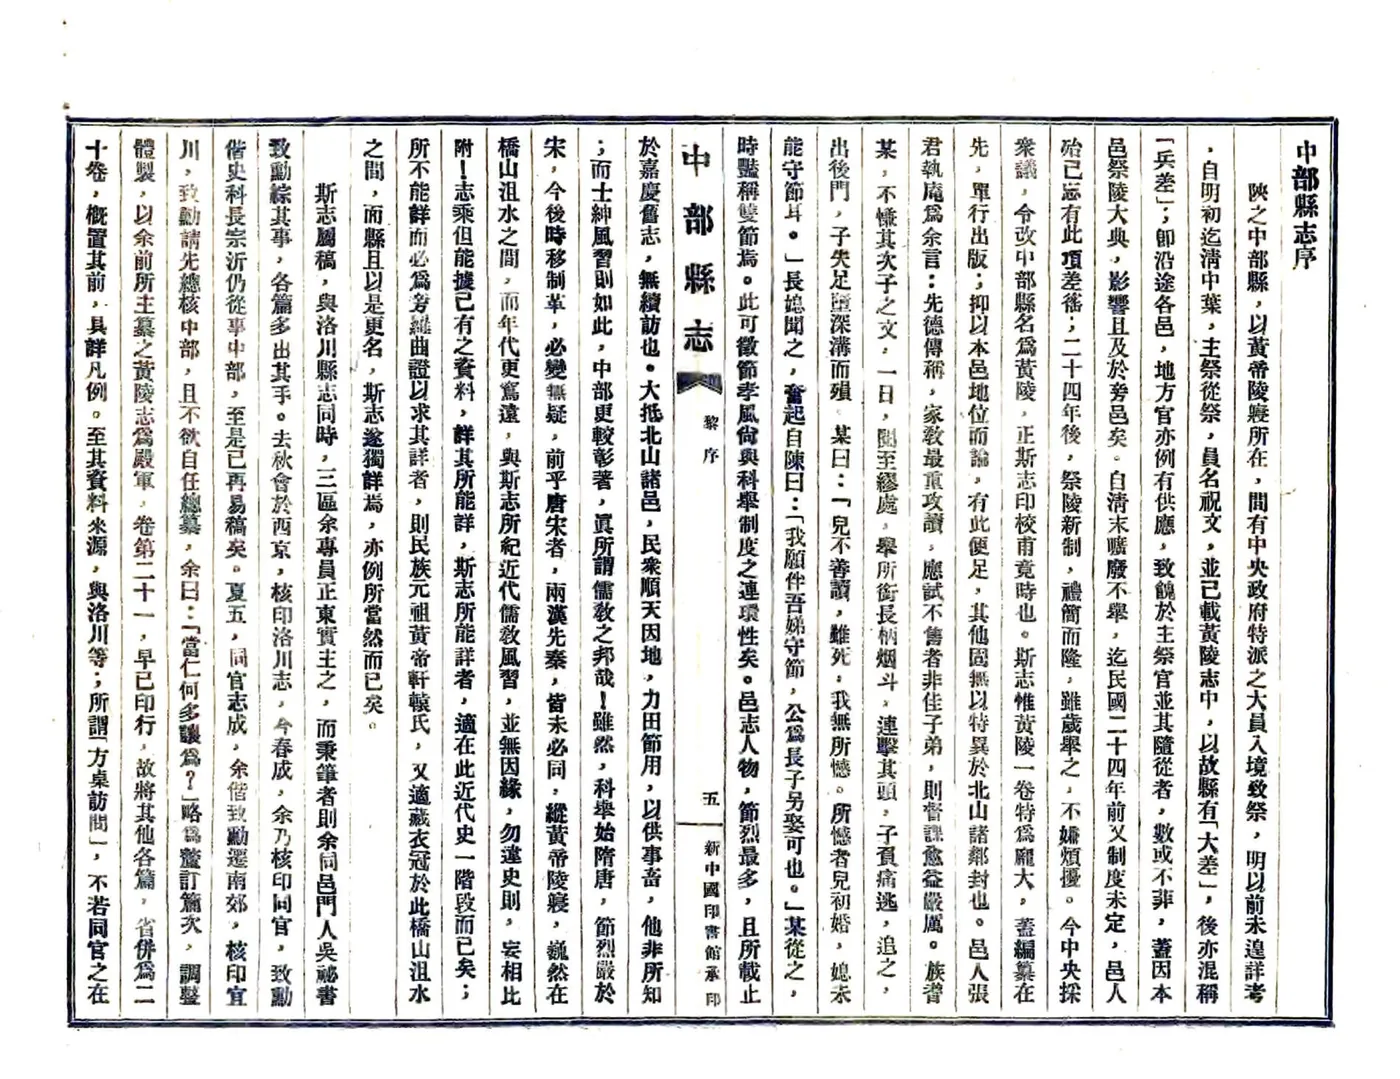 中部縣志序
陝之中部縣，以黃帝陵寢所在，間有中央政府特派之大員入境致祭，明以前未遑詳考
，自明初迄淸中葉，主祭從祭，員名祝文，並已載黃陵志中，以故縣有「大差」，後亦混稱
「兵差」；卽沿途各邑，地方官亦例有供應，致饒於主祭官並其隨從者，數或不菲，蓋因本
邑祭陵大典，影響且及於旁邑矣。自淸末曠廢不舉，迄民國二十四年前又制度未定，邑人
殆已忘有此項差徭；二十四年後，祭陵新制，禮簡而隆，雖歲舉之，不嫌煩擾。今中央採
衆議，令改中部縣名爲黃陵，正斯志印校甫竟時也。斯志惟黃陵一卷特爲龐大，蓋編纂在
先，單行出版；抑以本邑地位而論，有此便足，其他固無以特異於北山諸鄰封也。邑人張
君執庵爲余言：先德傳稱，家敎最重攻讀，應試不售者非佳子弟，則督課愈益嚴厲。族耆
某，不慊其次子之文，一日，閱至繆處，舉所銜長柄烟斗，連擊其頭，子負痛逃，追之，
出後門，子失足墮深溝而殞。某曰：「兒不善讀，雖死，我無所憾。所憾者兒初婚，媳未
能守節耳。」長媳聞之，奮起自陳曰：「我願伴吾娣守節，公爲長子另娶可也。」某從之，
時豔稱雙節焉。此可徵節孝風尙與科舉制度之連環性矣。邑志人物，節烈最多，且所載止
中部縣志
黎序
五
新中國印書館承印
於嘉慶舊志，無續訪也。大抵北山諸邑，民衆順天因地，力田節用，以供事畜，他非所知
；而士紳風習則如此，中部更較彰著，眞所謂儒敎之邦哉！雖然，科舉始隋唐，節烈嚴於
宋，今後時移制革，必變無疑，前乎唐宋者，兩漢先秦，皆未必同，縱黃帝陵寢，巍然在
橋山沮水之間，而年代更寫遠，與斯志所紀近代儒敎風習，並無因緣，勿違史則，妄相比
附！志乘但能據已有之資料，詳其所能詳，斯志所能詳者，適在此近代史一階段而已矣；
所不能詳而必爲旁羅曲證以求其詳者，則民族元祖黃帝軒轅氏，又適藏衣冠於此橋山沮水
之間，而縣且以是更名，斯志遂獨詳焉，亦例所當然而已矣。
斯志屬稿，與洛川縣志同時，三區余專員正東實主之，而秉筆者則余同邑門人吳祕書
致勳綜其事，各篇多出其手。去秋會於西京，核印洛川志，今春成，余乃核印同官，致勳
偕史科長宗沂仍從事中部，至是已再易稿矣。夏五，同官志成，余偕致勳遷南郊，核印宜
川，致勳請先總核中部，且不欲自任總纂，余曰：「當仁何多讓爲？」略爲釐訂篇次，調整
體製，以余前所主纂之黃陵志爲殿軍，卷第二十一，早已印行，故將其他各篇，省併爲二
十卷，槪置其前，具詳凡例。至其資料來源，與洛川等；所謂「方桌訪問」，不若同官之在